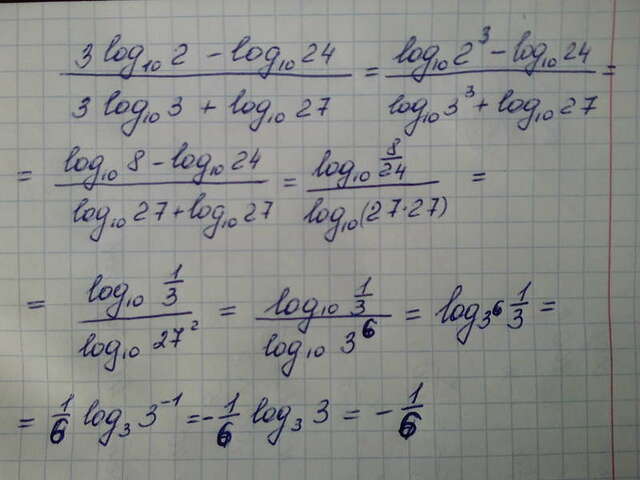 (3 log₁₀ 2 − log₁₀ 24) / (3 log₁₀ 3 + log₁₀ 27) = (log₁₀ 2³ − log₁₀ 24) / (log₁₀ 3³ + log₁₀ 27) =
= (log₁₀ 8 − log₁₀ 24) / (log₁₀ 27 + log₁₀ 27) = (log₁₀ 8/24) / (log₁₀ (27·27)) =
= (log₁₀ 1/3) / (log₁₀ 27²) = (log₁₀ 1/3) / (log₁₀ 3⁶) = log_{3⁶} 1/3 =
= 1/6 log₃ 3⁻¹ = −1/6 log₃ 3 = −1/6